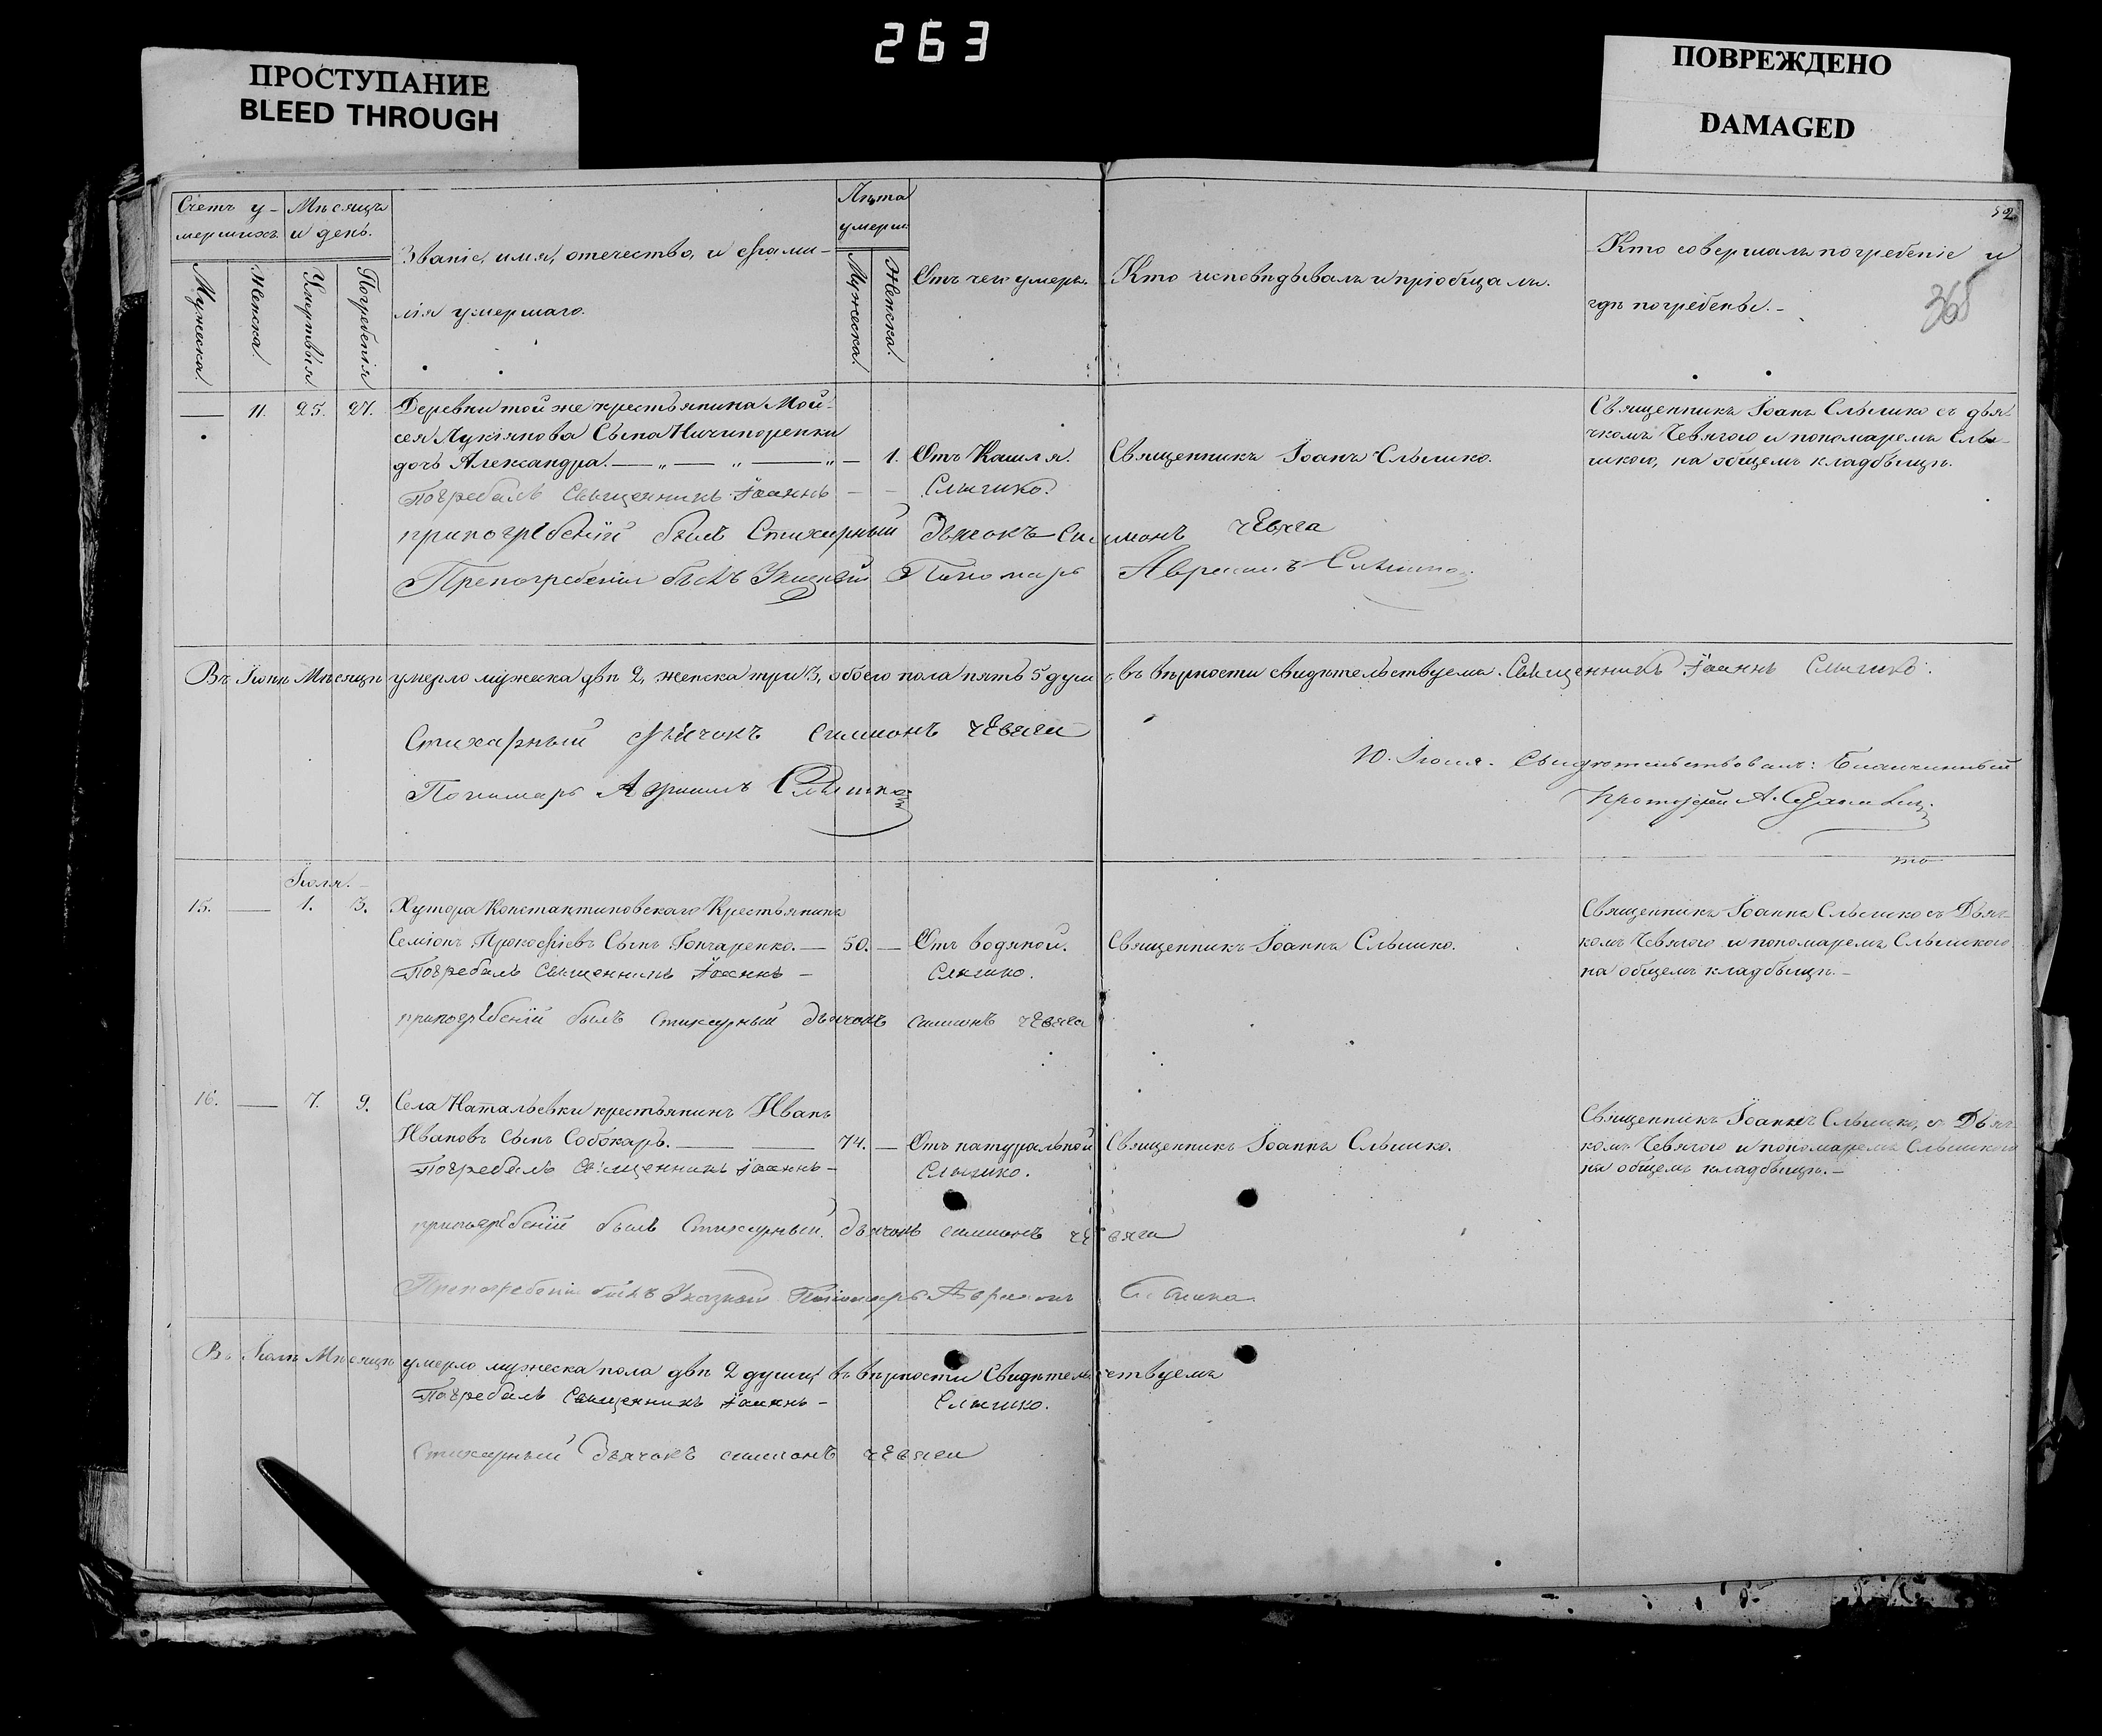 263
ПРОСТУПАНИЕ
BLEED THROUGH
ПОВРЕЖДЕНО
DAMAGED
52
365
Счетъ у-
мершихъ.
Мѣсяцъ
и день.
Званіе, имя, отечество, и фами-
лія умершаго.
Лѣта
умерш.
Отъ чего умеръ.
Кто исповѣдывалъ и пріобщалъ.
Кто совершалъ погребеніе и
гдѣ погребены.-
Мужеска.
Женска.
Умертвія
Погребенія
Мужеска.
Женска.
— 11. 25. 27. Деревни той же крестьянина Мой-
сея Лукіянова Сына Ничипоренки
дочь Александра. — „ — „ — „ — 1. Отъ Кашля. Священникъ Іоанъ Слышко.
Священникъ Іоанъ Слышко съ дья-
чкомъ Чевягою и пономаремъ Слы-
шкою, на общемъ кладбыщѣ.
Погребалъ Священникъ Іоаннъ — — Слышко.
припогребеніи былъ Стихарный дьячокъ Симионъ чевяга
Припогребеніи былъ Указный Пономарь Авраамъ Слышко
Въ Іюнѣ Мѣсяцѣ умерло мужеска двѣ 2, женска три 3, обоего пола пять 5 душъ въ вѣрности свидѣтельствуемъ. Священникъ Іоаннъ Слышко.
Стихарный дьячокъ симионъ чевяги
Пономарь Авраамъ Слышко
10. Іюля. Свидѣтельствовалъ: Благочинный
Протоіерей А.
Іюля.
15. — 1. 3. Хутора Константиновскаго Крестьянинъ
Семіонъ Прокофіевъ Сынъ Гончаренко. — 50. — Отъ водяной. Священникъ Іоаннъ Слышко.
Священникъ Іоаннъ Слышко съ Дьяч-
комъ Чевягою и пономаремъ Слышкою
на общемъ кладбыщѣ.-
Погребалъ Священникъ Іоаннъ — Слышко.
припогребеніи былъ стихарный дьячокъ симионъ чевяга
16. — 7. 9. Села Натальевки крестьянинъ Иванъ
Ивановъ Сынъ Собокарь. — — 74. — Отъ натуральной Священникъ Іоаннъ Слышко.
Священникъ Іоаннъ Слышко, съ Дьяч-
комъ Чевягою и пономаремъ Слышкою
на общемъ кладбыщѣ.-
Погребалъ Священникъ Іоаннъ — Слышко.
припогребеніи былъ Стихарный дьячокъ симионъ чевяги
Припогребеніи былъ Указный Пономарь Авраамъ Слышко
Въ Іюлѣ Мѣсяцѣ умерло мужеска пола двѣ 2 души, въ вѣрности Свидѣтельствуемъ
Погребалъ Священникъ Іоаннъ — Слышко.
Стихарный дьячокъ симионъ чевяги